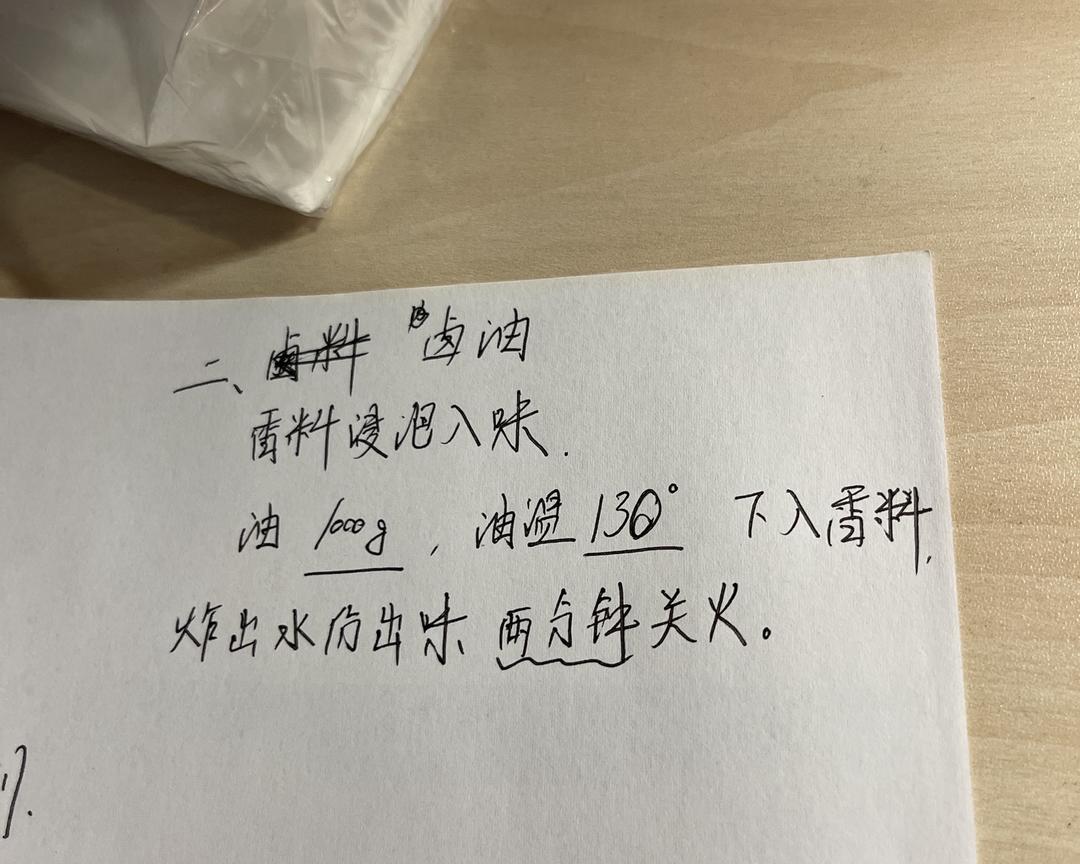 二、卤油
香料浸泡入味.
油 1000g , 油温 130° 下入香料,
炸出水份出味 两分钟关火。